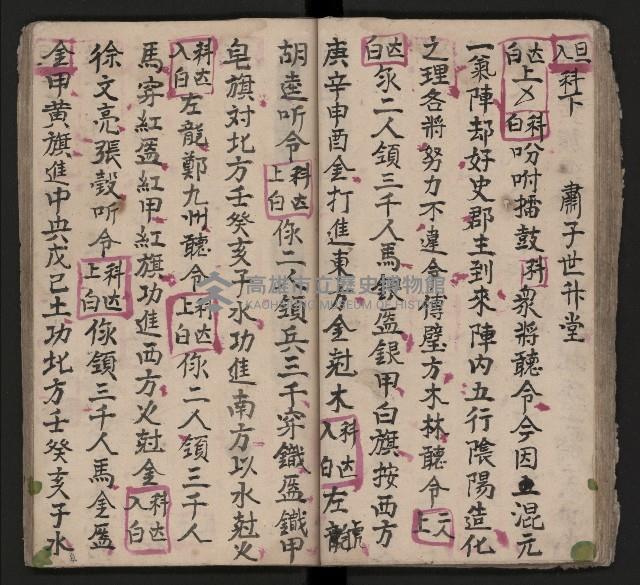 旦入科下　肅子世升堂
白达上又白科吩咐擂鼓科衆將聽令今因混元
一氣陣却好史郡主到來陣内五行陰陽造化
之理各將努力不違令傳璧方木林聽令二人上
白达你二人領三千人馬銀盔銀甲白旗按西方
庚辛申酉金打進東方金尅木科达入白左龍虎
胡遠听令科达上白你二人領兵三千穿鐵盔鐵甲
皂旗对北方壬癸亥子水功進南方以水尅火
科达入白左龍鄭九州聽令科达上白你二人領三千人
馬穿紅盔紅甲紅旗功進西方火尅金科达入白
徐文亮張㲄听令科达上白你領三千人馬金盔
金甲黄旗進中央戊己土功北方壬癸亥子水
高雄市立歷史博物館
KAOHSIUNG MUSEUM OF HISTORY